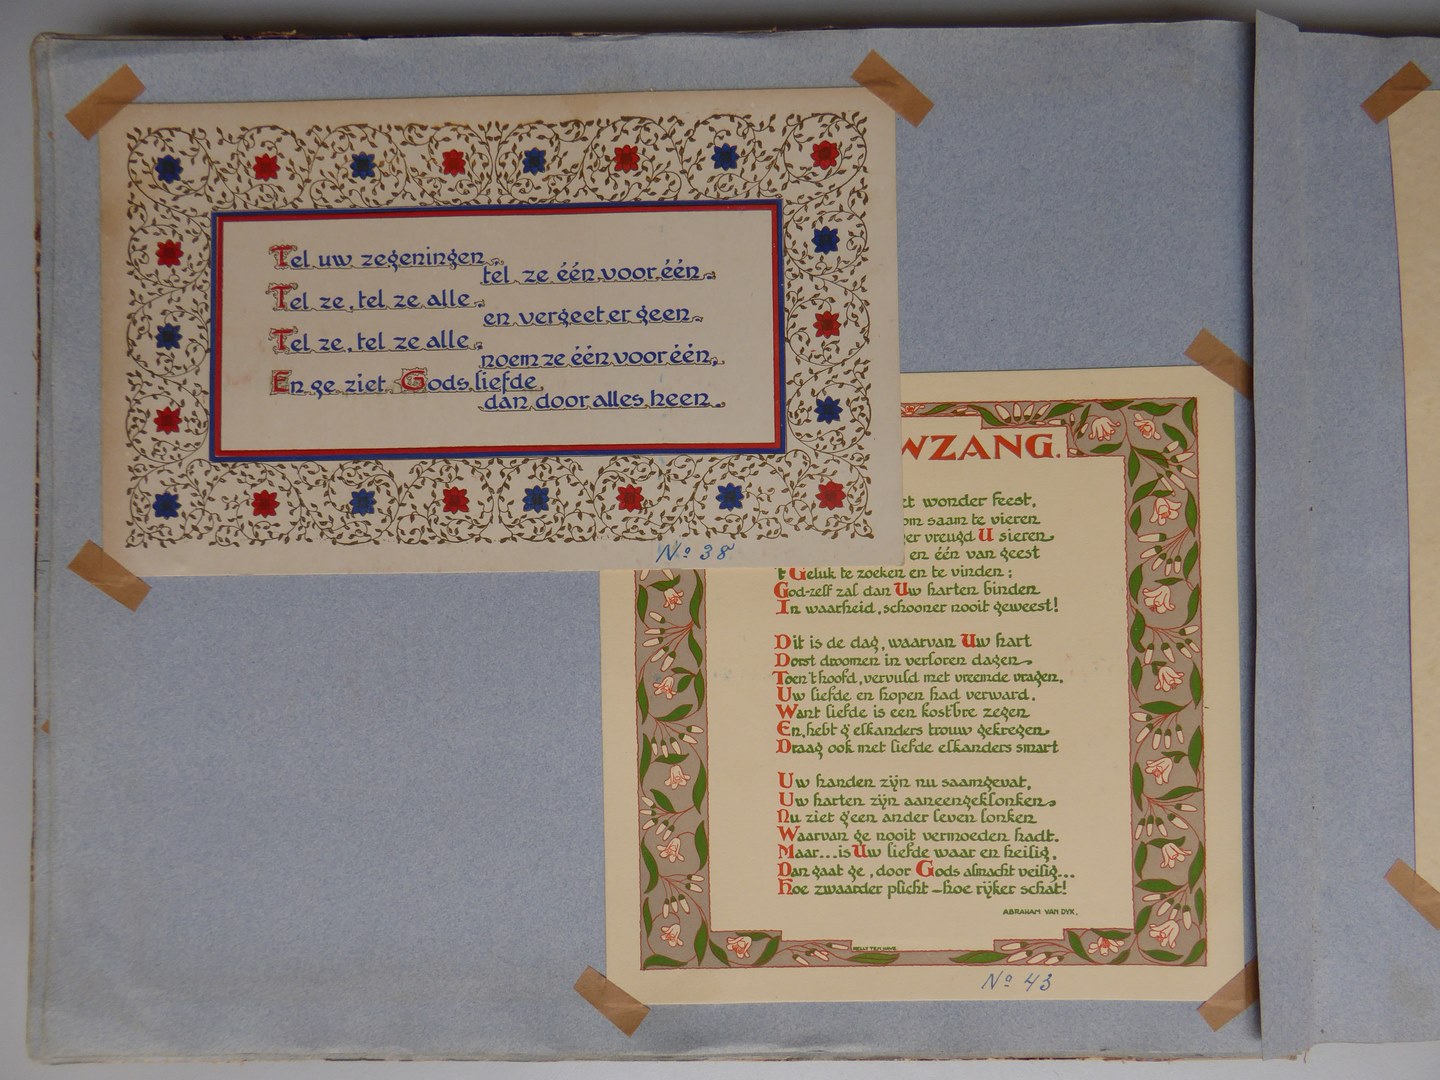 Tel uw zegeningen
tel ze één voor één
Tel ze, tel ze alle
en vergeet er geen
Tel ze, tel ze alle
noem ze één voor één,
En ge ziet Gods liefde
dan door alles heen
No 38
WZANG.
et wonder feest,
om saam te vieren
er vreugd U sieren
en één van geest
't Geluk te zoeken en te vinden;
God-zelf zal dan Uw harten binden
In waarheid, schooner nooit geweest!
Dit is de dag, waarvan Uw hart
Dorst droomen in verloren dagen
Toen 't hoofd, vervuld met vreemde vragen,
Uw liefde en hopen had verward.
Want liefde is een kostb're zegen
En, hebt g' elkanders trouw gekregen
Draag ook met liefde elkanders smart
Uw handen zijn nu saamgevat,
Uw harten zijn aaneengeklonken
Nu ziet g'een ander leven lonken
Waarvan ge nooit vermoeden hadt.
Maar...is Uw liefde waar en heilig,
Dan gaat ge, door Gods almacht veilig...
Hoe zwaarder plicht – hoe rijker schat!
ABRAHAM VAN DYK.
No 43